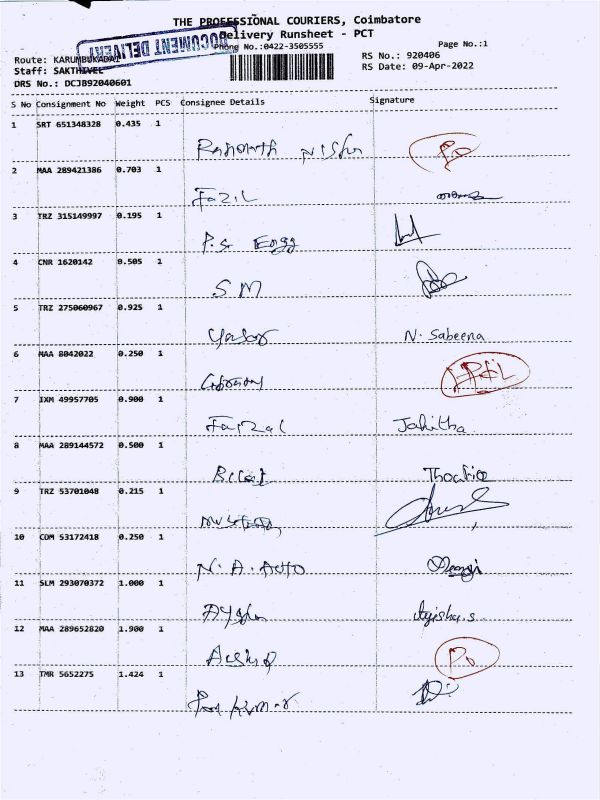 THE PROFESSIONAL COURIERS, Coimbatore
Delivery Runsheet - PCT
DOCUMENT DELIVERY
Phone No.:0422-3505555
Page No.:1
Route: KARUMBUKADAI
RS No.: 920406
Staff: SAKTHIVEL
RS Date: 09-Apr-2022
DRS No.: DCJB92040601
S No Consignment No Weight PCS Consignee Details Signature
1 SRT 651348328 0.435 1
2 MAA 289421386 0.703 1
Fazil
3 TRZ 315149997 0.195 1
P.S Engg
4 CNR 1620142 0.505 1
S M
5 TRZ 275060967 0.925 1
N. Sabeena
6 MAA 8042022 0.250 1
7 IXM 49957705 0.900 1
Faizal Jahitha
8 MAA 289144572 0.500 1
9 TRZ 53701048 0.215 1
10 COM 53172418 0.250 1
N. A. Auto
11 SLM 293070372 1.000 1
Ayisha.s
12 MAA 289652820 1.900 1
13 TMR 5652275 1.424 1